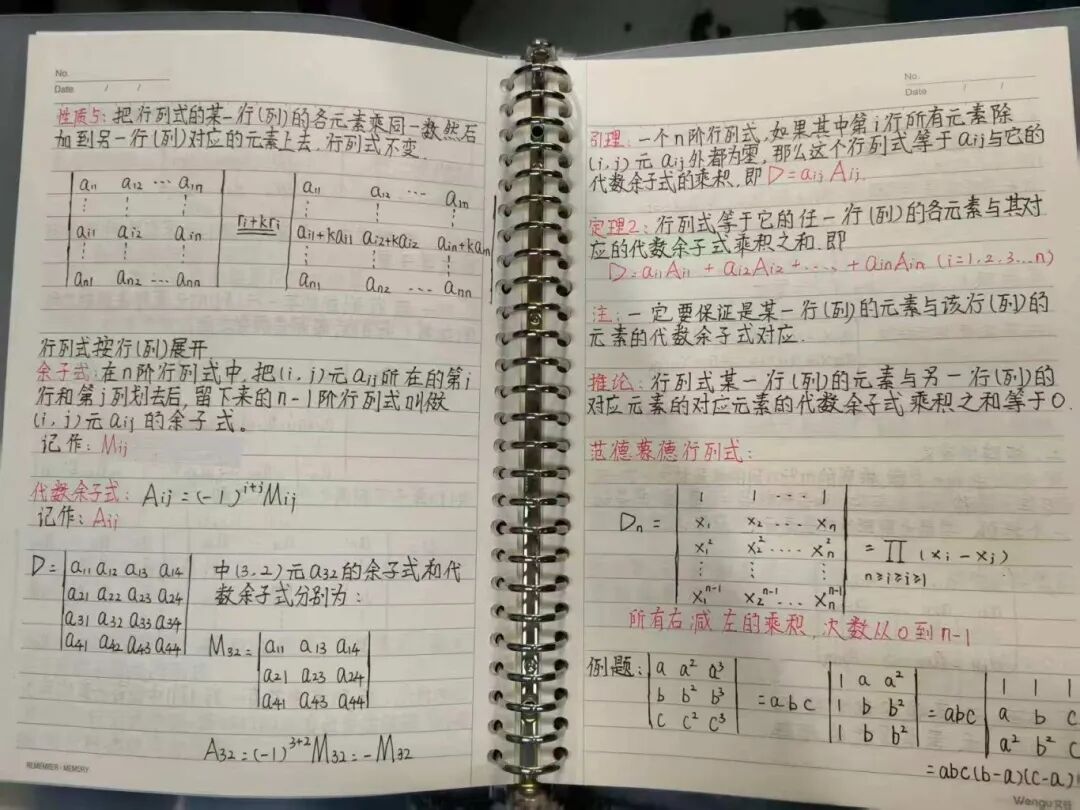 No.
Date / /
性质5：把行列式的某一行(列)的各元素乘同一数然后
加到另一行(列)对应的元素上去，行列式不变.
| a11 a12 … a1n | | a11 a12 … a1n |
| ⋮ ⋮ ⋮ | | ⋮ ⋮ ⋮ |
| ai1 ai2 ain | ri+kri | ai1+kai1 ai2+kai2 ain+kain |
| ⋮ ⋮ ⋮ | | ⋮ ⋮ ⋮ |
| an1 an2 … ann | | an1 an2 … ann |
行列式按行(列)展开
余子式：在n阶行列式中，把(i，j)元aij所在的第i
行和第j列划去后，留下来的n-1阶行列式叫做
(i，j)元aij的余子式。
记作：Mij
代数余子式：Aij=(-1)^{i+j}Mij
记作：Aij
D= | a11 a12 a13 a14 | 中(3,2)元a32的余子式和代
| a21 a22 a23 a24 | 数余子式分别为：
| a31 a32 a33 a34 |
| a41 a42 a43 a44 |
M32= | a11 a13 a14 |
| a21 a23 a24 |
| a41 a43 a44 |
A32=(-1)^{3+2}M32=-M32
REMEMBER·MEMORY
No.
Date / /
引理：一个n阶行列式，如果其中第i行所有元素除
(i,j)元aij外都为零，那么这个行列式等于aij与它的
代数余子式的乘积，即D=aijAij.
定理2：行列式等于它的任一行(列)的各元素与其对
应的代数余子式乘积之和.即
D=ai1Ai1+ai2Ai2+....+ainAin (i=1.2.3...n)
注：一定要保证是某一行(列)的元素与该行(列)的
元素的代数余子式对应.
推论：行列式某一行(列)的元素与另一行(列)的
对应元素的对应元素的代数余子式乘积之和等于0.
范德蒙德行列式：
| 1 1 … 1 |
Dn= | x1 x2 … xn |
| x1² x2² … xn² | =∏(xi-xj)
| ⋮ ⋮ ⋮ | n≥i≥j≥1
| x1^{n-1} x2^{n-1} … xn^{n-1} |
所有右减左的乘积，次数从0到n-1
例题： | a a² a³ | | 1 a a² | | 1 1 1
| b b² b³ | =abc | 1 b b² | =abc | a b c
| c c² c³ | | 1 b b² | | a² b² c
=abc(b-a)(c-a)
Wengu